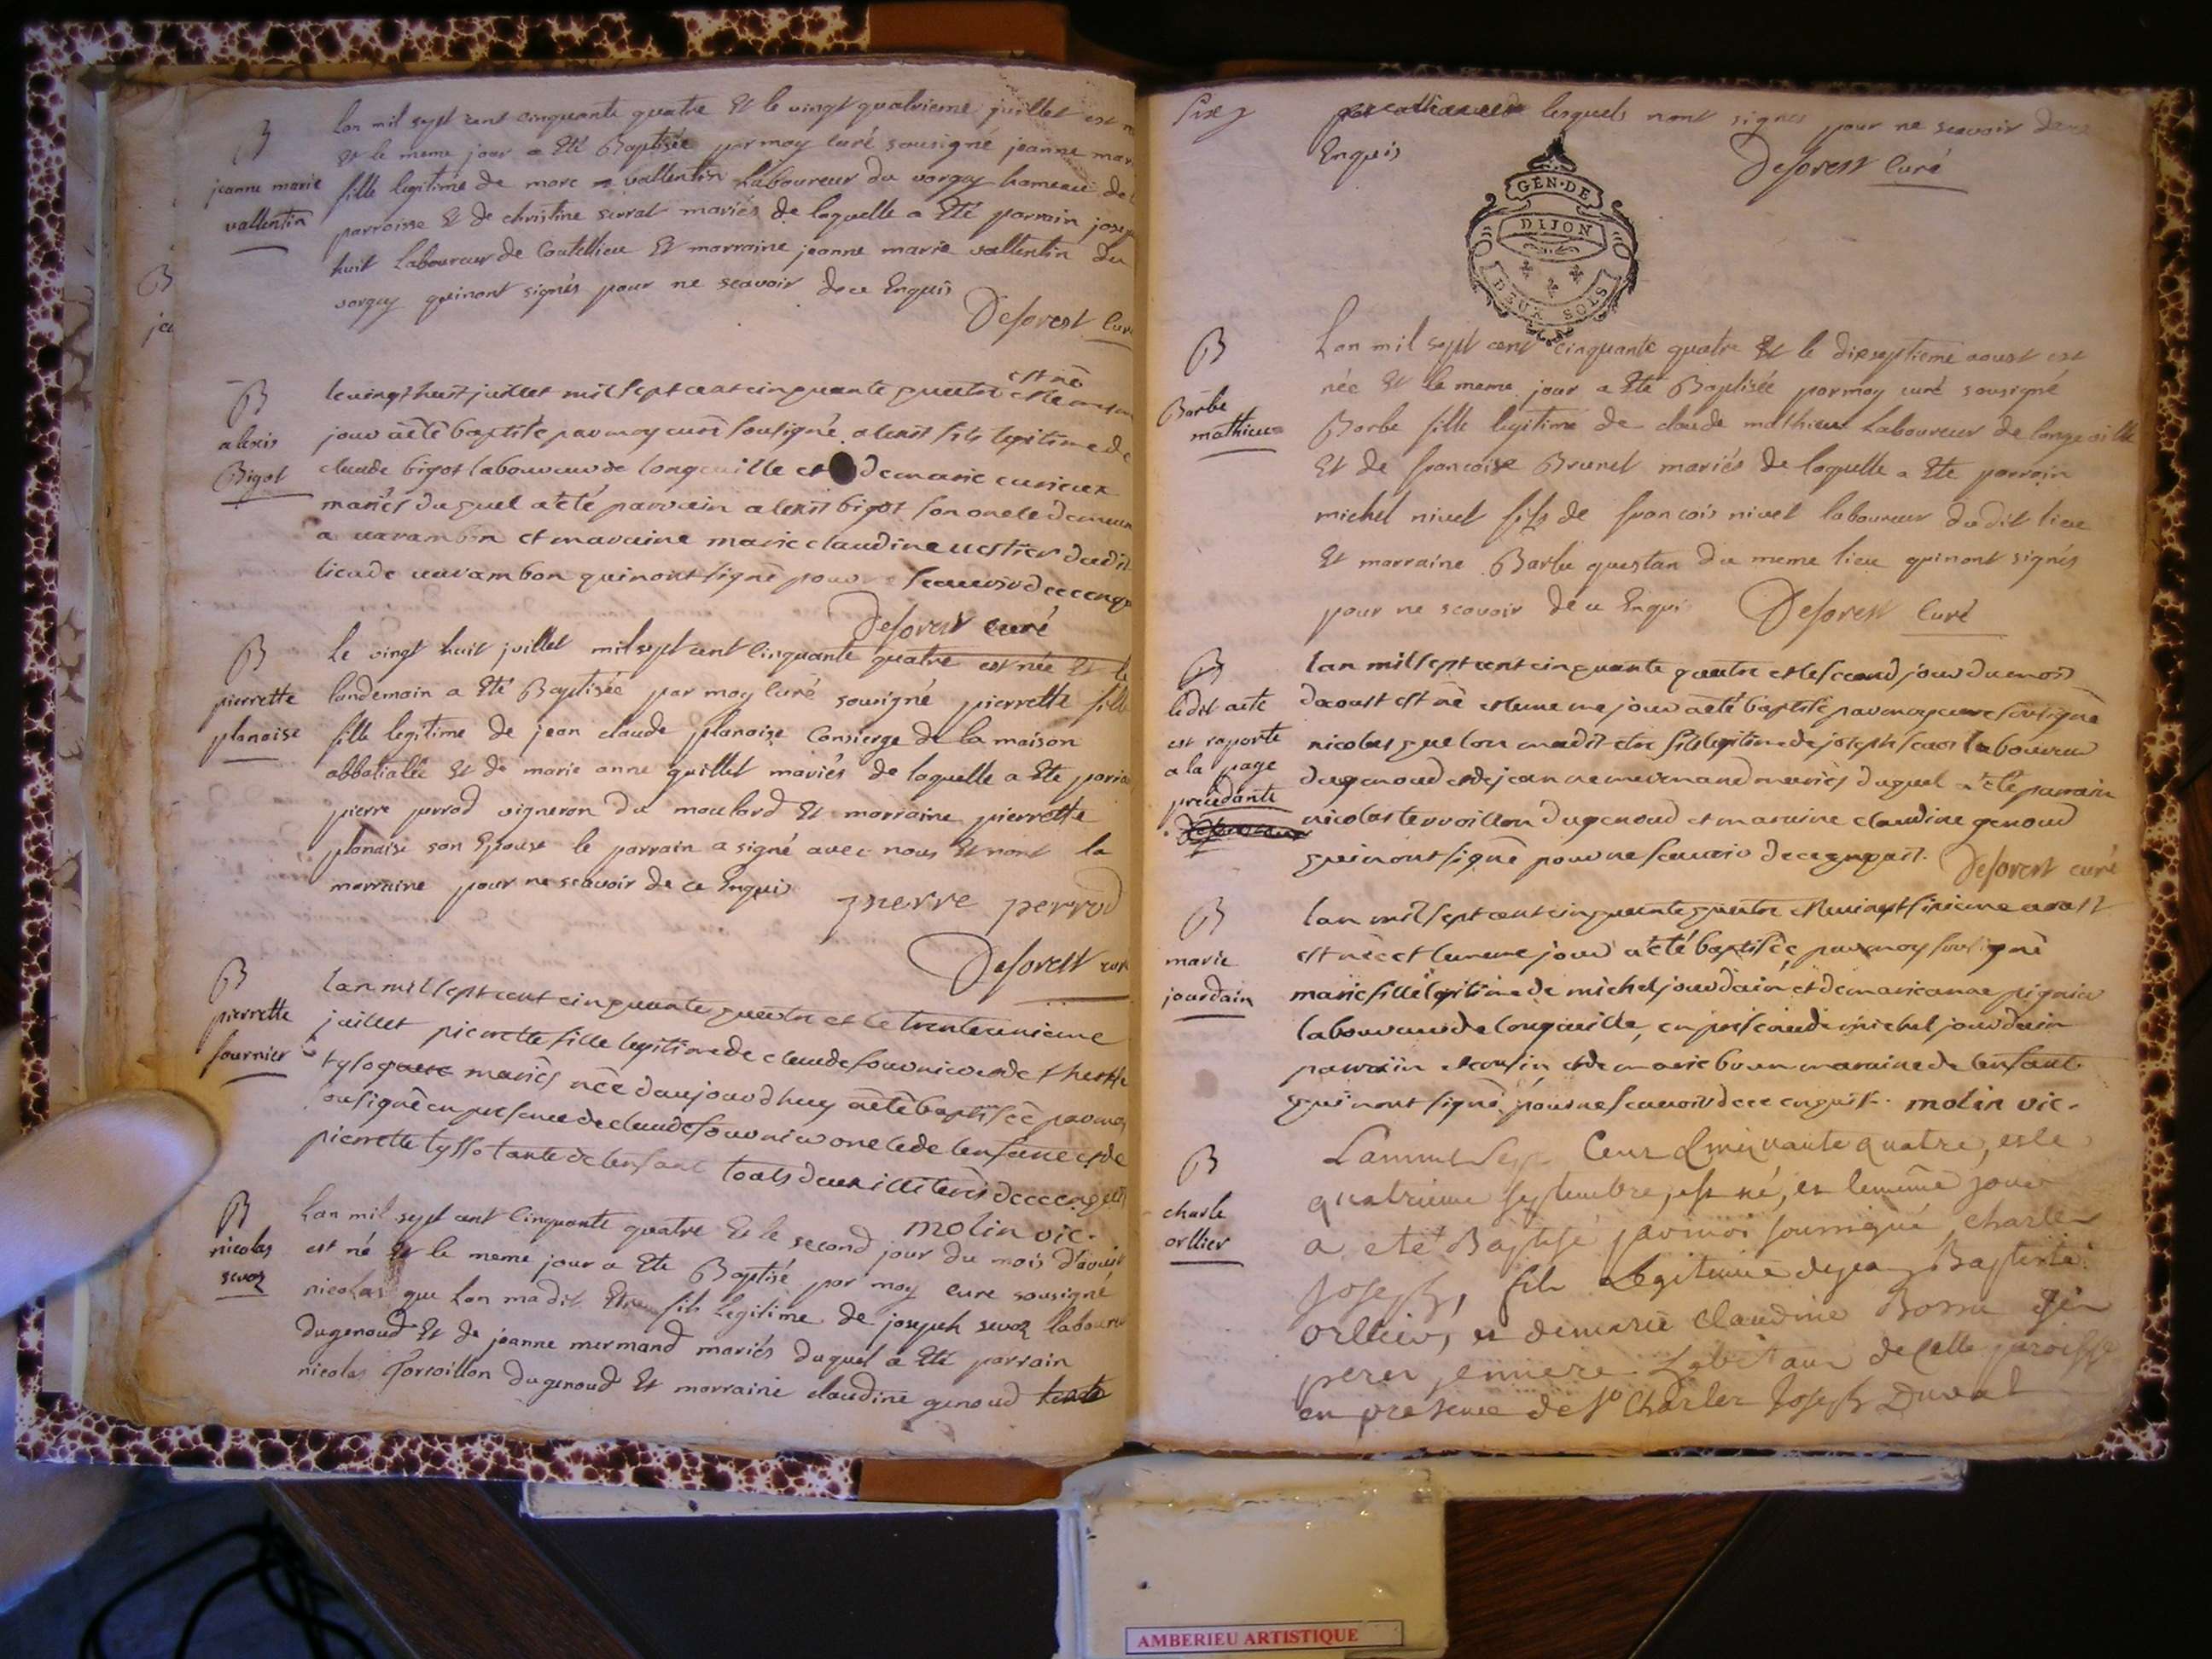 B
jeanne marie
vallentin
Lan mil sept cent cinquante quatre Et le vingt quatrieme juillet est
Et le meme jour a Eté Baptisée par moy curé sousigné jeanne mar
fille legitime de marc vallentin Laboureur du vorgey hameau de
parroisse Et de christine serrat mariés de laquelle a Eté parrain jose
huit Laboureur de Coutellieu Et marraine jeanne marie vallentin du
vorgey quinont signés pour ne scavoir de ce Enquis
Deforest Curé
B
alexis
Bigot
le vingt huit juillet mil sept cent cinquante quatre est né et le meme
jour a èté baptisé par moy curé sousigné alexis fils legitime de
claude bigot laboureur de longeville et de marie curieux
mariés duquel a èté parrain alexis bigot son oncle demeur
a varambon et maraine marie claudine vestier dudit
lieu de varambon quinont signé pour scavoir de ce enqu
Deforest curé
B
pierrette
planaise
Le vingt huit juillet mil sept cent Cinquante quatre est née Et le
landemain a Eté Baptisée par moy Curé sousigné pierrette fille
fille legitime de jean claude planaise Consierge de la maison
abbatialle Et de marie anne quillet mariés de laquelle a Eté parrai
pierre perrod vigneron du moulard Et marraine pierrette
planaise son Epouse le parrain a signé avec nous Et nont la
marraine pour ne scavoir de ce Enquis
pierre perrod
Deforest curé
B
pierrette
fournier
lan mil sept cent cinquante quatre et le trente unieme
juillet pierrette fille legitime de claude fournier et de therese
tyso mariés nèe daujourdhuy a èté baptisèe par moy
sousigné en presence de claude fournier oncle de lenfant et de
pierrette tysso tante de lenfant touts deux illiterés de ce enquis
molin vic.
B
nicolas
sevoz
Lan mil sept cent Cinquante quatre Et le second jour du mois d'aoust
est né Et le meme jour a Eté Baptisé par moy curé sousigné
nicolas que Lon ma dit Etre fils Legitime de joseph sevoz laboureur
dugenoud Et de jeanne mermand mariés duquel a Eté parrain
nicolas Torvoillon dugenoud Et marraine claudine genoud
Sixe
lesquels nont signes pour ne scavoir de ce
Enquis
Deforest Curé
GÉN. DE
DIJON
DEUX SOLS
B
Barbe
mathieu
Lan mil sept cent cinquante quatre Et le dixseptieme aoust est
née Et le meme jour a Eté Baptisée par moy curé sousigné
Barbe fille legitime de claude mathieu Laboureur de longeville
Et de francoise Brunet mariés de laquelle a Eté parrain
michel nivet fils de francois nivet laboureur dudit lieu
Et marraine Barbe questan du meme lieu quinont signés
pour ne scavoir de ce Enquis Deforest Curé
B
ledit acte
est raporté
a la page
precedante
lan mil sept cent cinquante quatre et le second jour du mois
daoust est né et le meme jour a èté baptisé par moy curé sousigné
nicolas que lon ma dit etre fils legitime de joseph sevoz laboureur
dugenoud et de jeanne mermand mariès duquel a èté parrain
nicolas tervoillon dugenoud et maraine claudine genoud
quinont signé pour ne scavoir de ce enquis. Deforest curé
B
marie
jourdain
lan mil sept cent cinquante quatre et le vingt sixieme aoust
est née et le meme jour a èté baptisée par moy sousigné
marie fille legitime de michel jourdain et de marie anne pignier
laboureur de longeville, en presence de michel jourdain
parrain et cousin et de marie brun maraine de lenfant
quinont signé pour ne scavoir de ce enquis. molin vic.
B
charle
orllier
Lan mil Sept Cent Cinquante quatre, et le
quatrieme septembre, est né, et le même jour
a eté Baptisé par moi soussigné, Charles
Joseph, fils Legitime de jean Baptiste
orllier, et de marie claudine Bossu
pere, et mere habitans de cette paroisse
en présence de Sr Charles Joseph Duval
AMBERIEU ARTISTIQUE